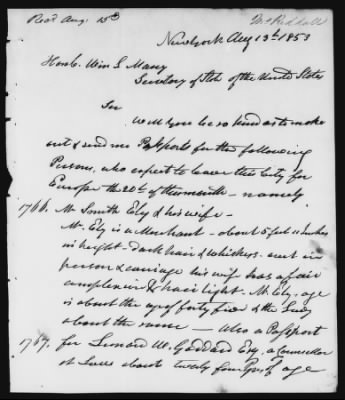 Read Aug. 15th
Newyork Aug 13th 1853
Honble. Wm L Marcy
Secretary of State of the United States
Sir
Will you be so kind as to make
out & send me Passports for the following
Persons, who expect to leave this City for
Europe the 20th of this month - namely
1766. Mr Smith Ely & his wife -
Mr. Ely is a Merchant - about 5 feet 11 Inches
in height - dark hair & whiskers - erect in
person & carriage his wife has a fair
complexion & hair light - Mr Ely, age
is about the age of forty five & the Lady
about the same - also a Passport
1767. for Leonard W. Goddard Esq, a Counsellor
at Law about twenty four yrs of age